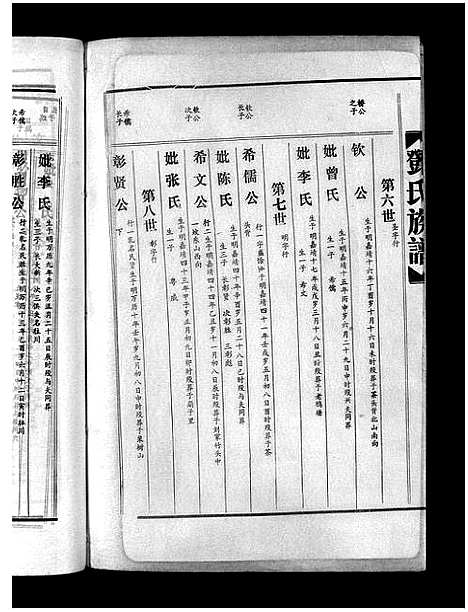 鄧氏族譜
第六世
圣字行
榜公之子
钦公
生于明嘉靖十六年丁酉岁十月十六日未时殁葬于茶头背北山南向
妣曾氏
生于明嘉靖十五年丙申岁六月二十九日申时殁兴夫同葬
生一子 希儒
妣李氏
生于明嘉靖十七年戊戌岁三月十八日丑时殁葬于老鸦塘
生一子 希文
第七世
明字行
钦公长子
希儒公
行一字
生于明嘉靖四十一年壬戌岁五月初八日申时殁葬于茶
头背
妣陈氏
生于明嘉靖四十年辛酉岁二月十八日巳时殁与夫同葬
生三子 长彰贤 次彰胜 三彰彪
钦公次子
希文公
行二生于明嘉靖四十四年乙丑岁十一月初八日辰时殁葬于刘家竹头中
一歧东山西向
妣张氏
生于明嘉靖四十三年甲子岁正月初九日卯时殁葬于庙子里
生一子
第八世
彰字行
希儒长子
彰贤公
行一乳名民贤生于明万历十年壬午岁九月初八日申时殁葬于东树山
下
妣李氏
生于明万历九年辛巳岁五月二十五日辰时殁与夫同葬
生三子
希儒次子
彰胜公
行二乳名民胜生于明万历十三年乙酉岁六月十二日寅时